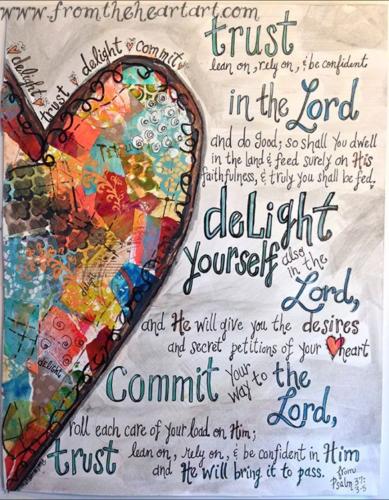 www.fromtheheartart.com
delight trust delight commit
trust
lean on, rely on, & be confident
in the Lord
and do good; so shall you dwell
in the land & feed surely on His
faithfulness, & truly you shall be fed.
deLight
yourself also in the
Lord,
and He will give you the desires
and secret petitions of your heart
Commit your way to the
Lord,
roll each care of your load on Him;
trust lean on, rely on, & be confident in Him
and He will bring it to pass.
from Psalm 37:3-5
delight